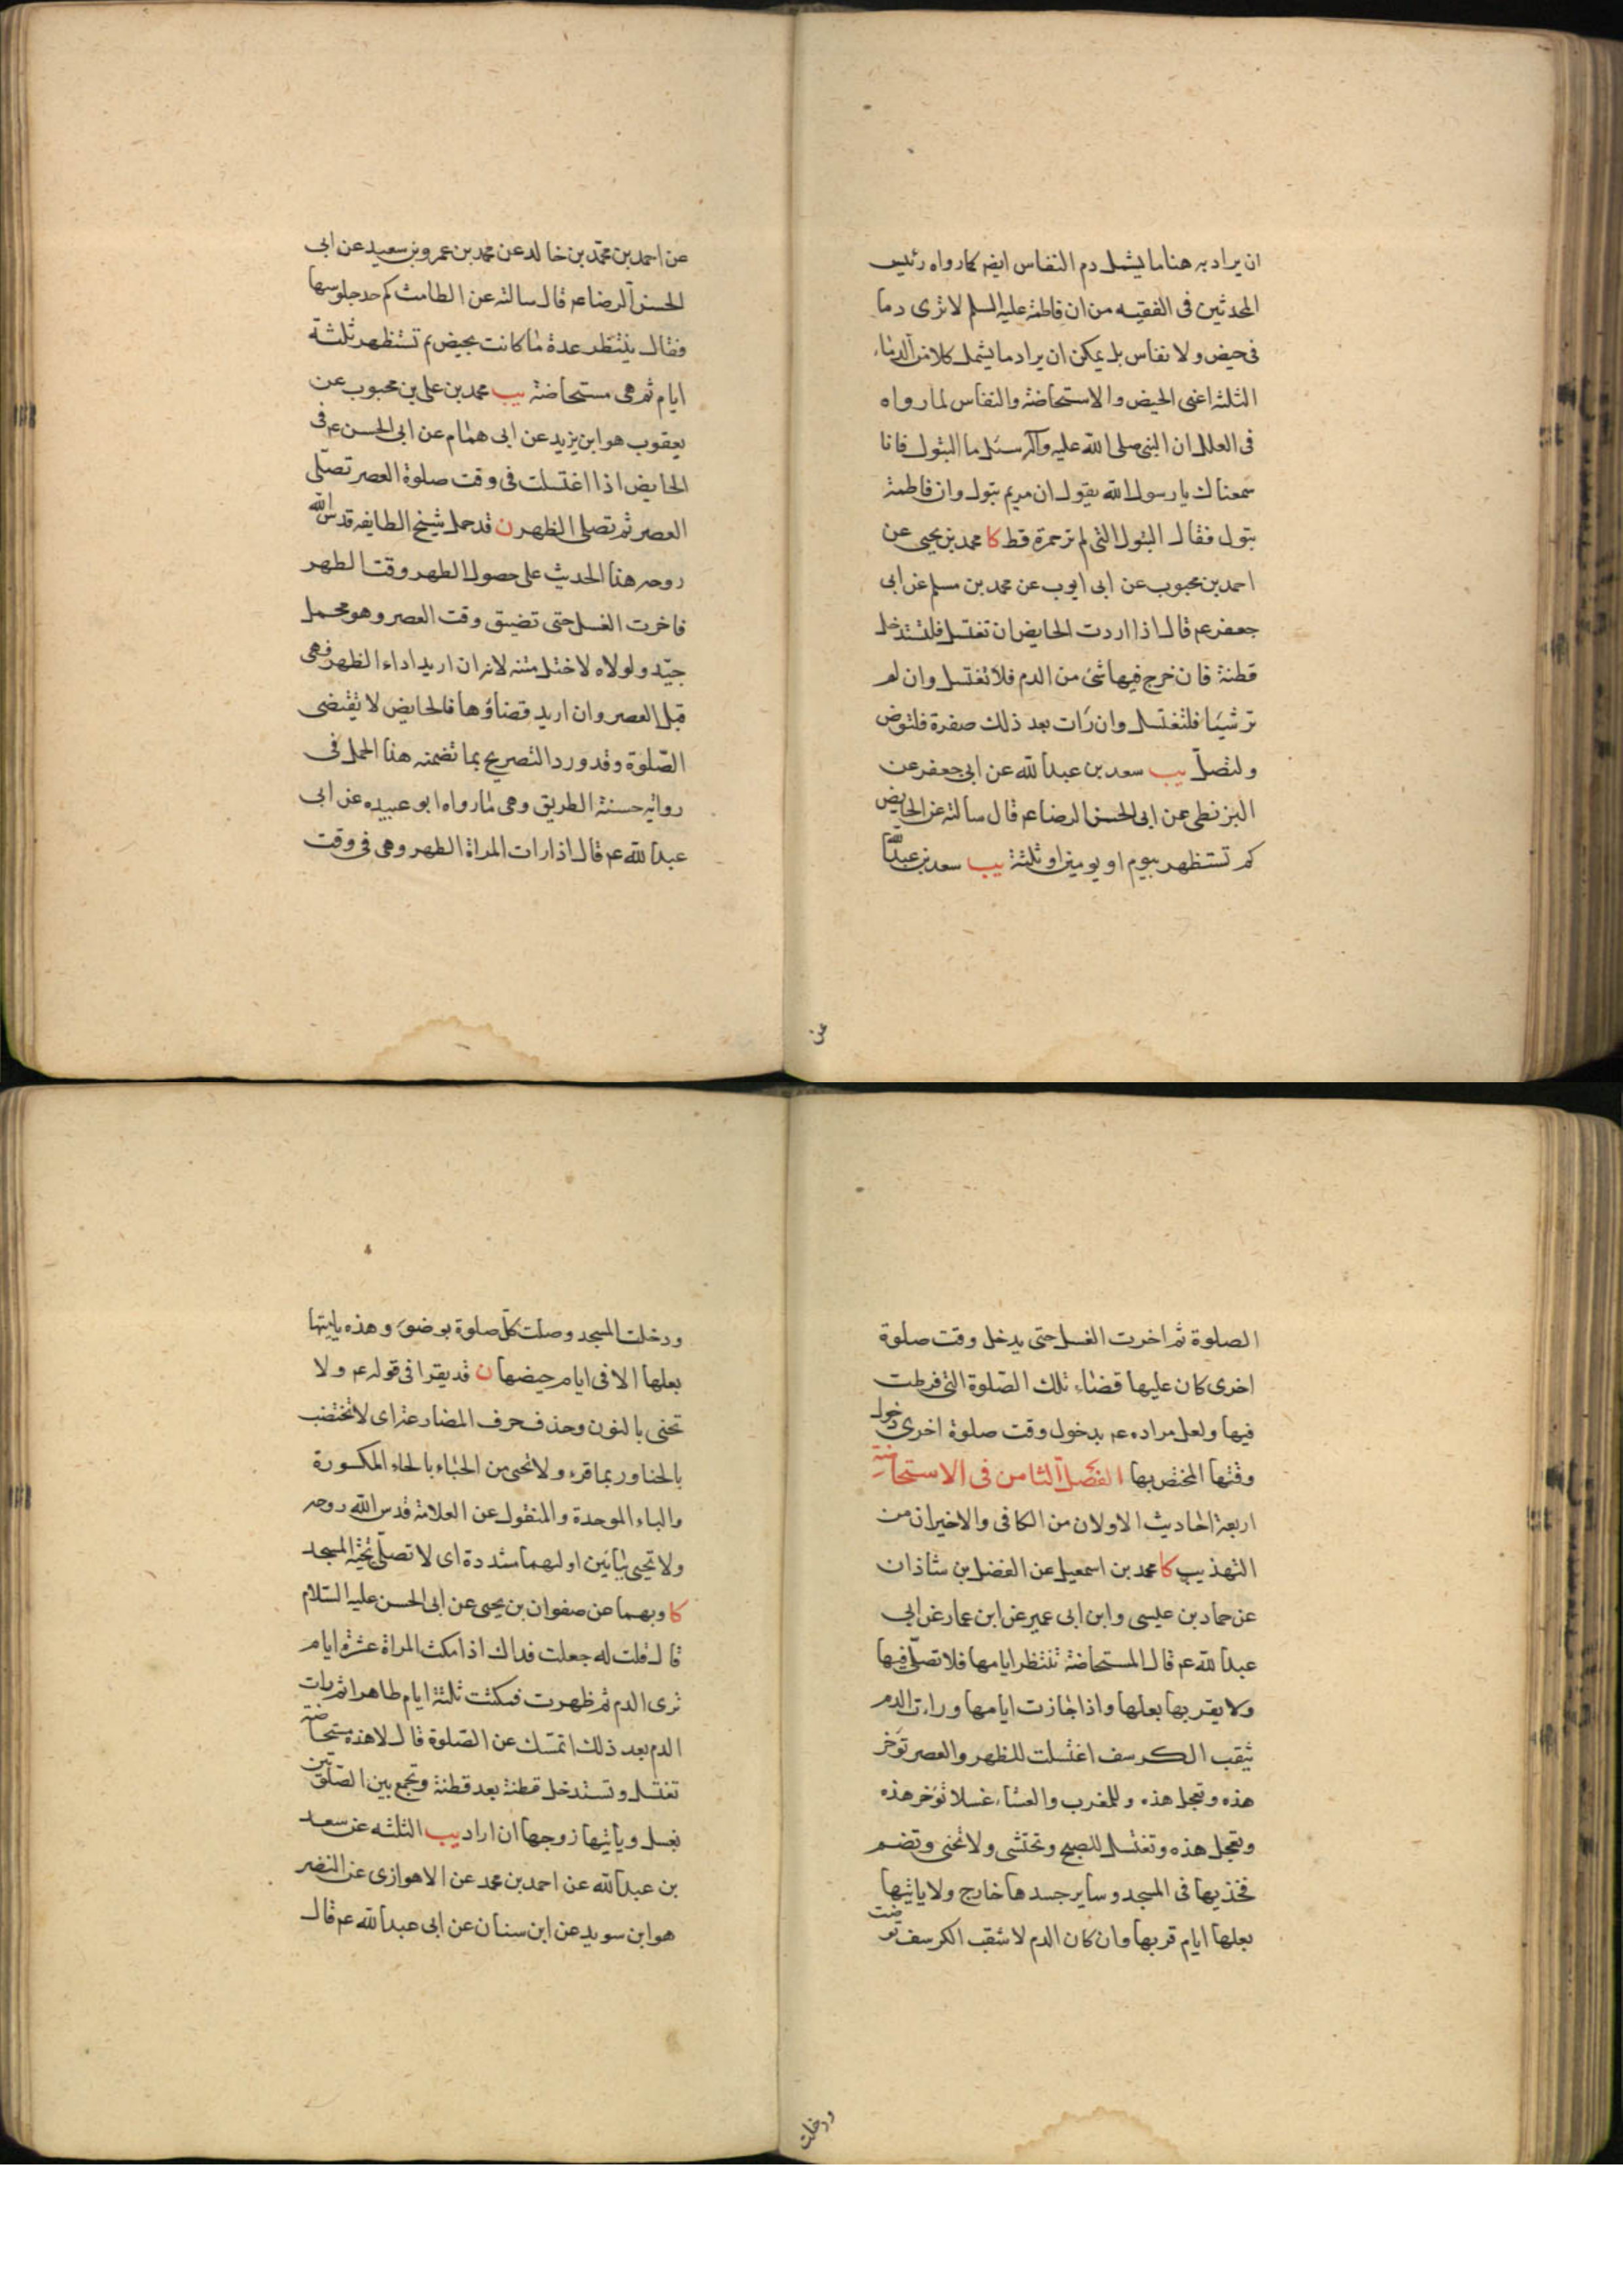 ان يراد به هنا ما يشمل دم النفاس ايضا كما رواه رئيس
المحدثين فى الفقيه من ان فاطمة عليها السلم لا ترى دما
فى حيض ولا نفاس بل يمكن ان يراد ما يشمل كلا من الدماء
الثلثه اعنى الحيض والاستحاضة والنفاس لما رواه
فى العلل ان النبى صلى الله عليه وآله سئل ما البتول فانا
سمعناك يا رسول الله يقول ان مريم بتول وان فاطمة
بتول فقال البتول التى لم تر حمرة قط كا محمد بن يحيى عن
احمد بن محبوب عن ابى ايوب عن محمد بن مسلم عن ابى
جعفر عم قال اذا اردت الحايض ان تغتسل فلتستدخل
قطنة فان خرج فيها شئ من الدم فلا تغتسل وان لم
تر شيئا فلتغتسل وان رات بعد ذلك صفرة فلتوض
ولتصل يب سعد بن عبد الله عن ابى جعفر عن
البزنطى عن ابى الحسن الرضا عم قال سالته عن الحايض
كم تستظهر بيوم او يومين او ثلثة يب سعد بن عبد الله
عن
عن احمد بن محمد بن خالد عن محمد بن عمرو بن سعيد عن ابى
الحسن الرضا عم قال سالته عن الطامث كم حد جلوسها
فقال تنتظر عدة ما كانت تحيض ثم تستظهر بثلثة
ايام ثم هى مستحاضة يب محمد بن على بن محبوب عن
يعقوب هو ابن يزيد عن ابى همام عن ابى الحسن عم فى
الحايض اذا اغتسلت فى وقت صلوة العصر تصلى
العصر ثم تصلى الظهر ن قد حمل شيخ الطايفه قدس الله
روحه هذا الحديث على حصول الطهر وقت الظهر
فاخرت الغسل حتى تضيق وقت العصر وهو محمل
جيد ولولاه لاختل متنه لانه ان اريد اداء الظهر فهى
قبل العصر وان اريد قضاؤها فالحايض لا تقتضى
الصلوة وقد ورد التصريح بما تضمنه هذا الحمل فى
رواية حسنة الطريق وهى ما رواه ابو عبيده عن ابى
عبد الله عم قال اذا رات المراة الطهر وهى فى وقت
الصلوة ثم اخرت الغسل حتى يدخل وقت صلوة
اخرى كان عليها قضاء تلك الصلوة التى فرطت
فيها ولعل مراده عم بدخول وقت صلوة اخرى دخول
وقتها المختص بها الفصل الثامن فى الاستحاضة
اربعة احاديث الاولان من الكافى والاخيران من
التهذيب كا محمد بن اسمعيل عن الفضل بن شاذان
عن حماد بن عيسى وابن ابى عمير عن ابن عمار عن ابى
عبد الله عم قال المستحاضة تنتظر ايامها فلا تصلى فيها
ولا يقربها بعلها واذا جازت ايامها وراءت الدم
يثقب الكرسف اغتسلت للظهر والعصر تؤخر
هذه وتعجل هذه وللمغرب والعشاء غسلا تؤخر هذه
وتعجل هذه وتغتسل للصبح وتحتشى ولا تحنى وتضم
فخذيها فى المسجد وساير جسدها خارج ولا ياتيها
بعلها ايام قربها وان كان الدم لا يثقب الكرسف توضت
ودخلت
ودخلت المسجد وصلت كل صلوة بوضوء وهذه ياتيها
بعلها الا فى ايام حيضها ن قد يقرا فى قوله عم ولا
تحنى بالنون وحذف حرف المضارعة اى لا تختضب
بالحنا وربما قرء ولا تحبى من الحباء بالحاء المكسورة
والباء الموحدة والمنقول عن العلامة قدس الله روحه
ولا تحيى بيائين اولهما مشددة اى لا تصلى تحية المسجد
كا وبهما عن صفوان بن يحيى عن ابى الحسن عليه السلام
قال قلت له جعلت فداك اذا مكث المراة عشرة ايام
ترى الدم ثم طهرت فمكثت ثلثة ايام طاهرا ثم رات
الدم بعد ذلك اتمسك عن الصلوة قال لا هذه مستحاضة
تغتسل وتستدخل قطنة بعد قطنة وتجمع بين الصلوتين
بغسل وياتيها زوجها ان اراد يب الثلثه عن سعد
بن عبد الله عن احمد بن محمد عن الاهوازى عن النضر
هو ابن سويد عن ابن سنان عن ابى عبد الله عم قال